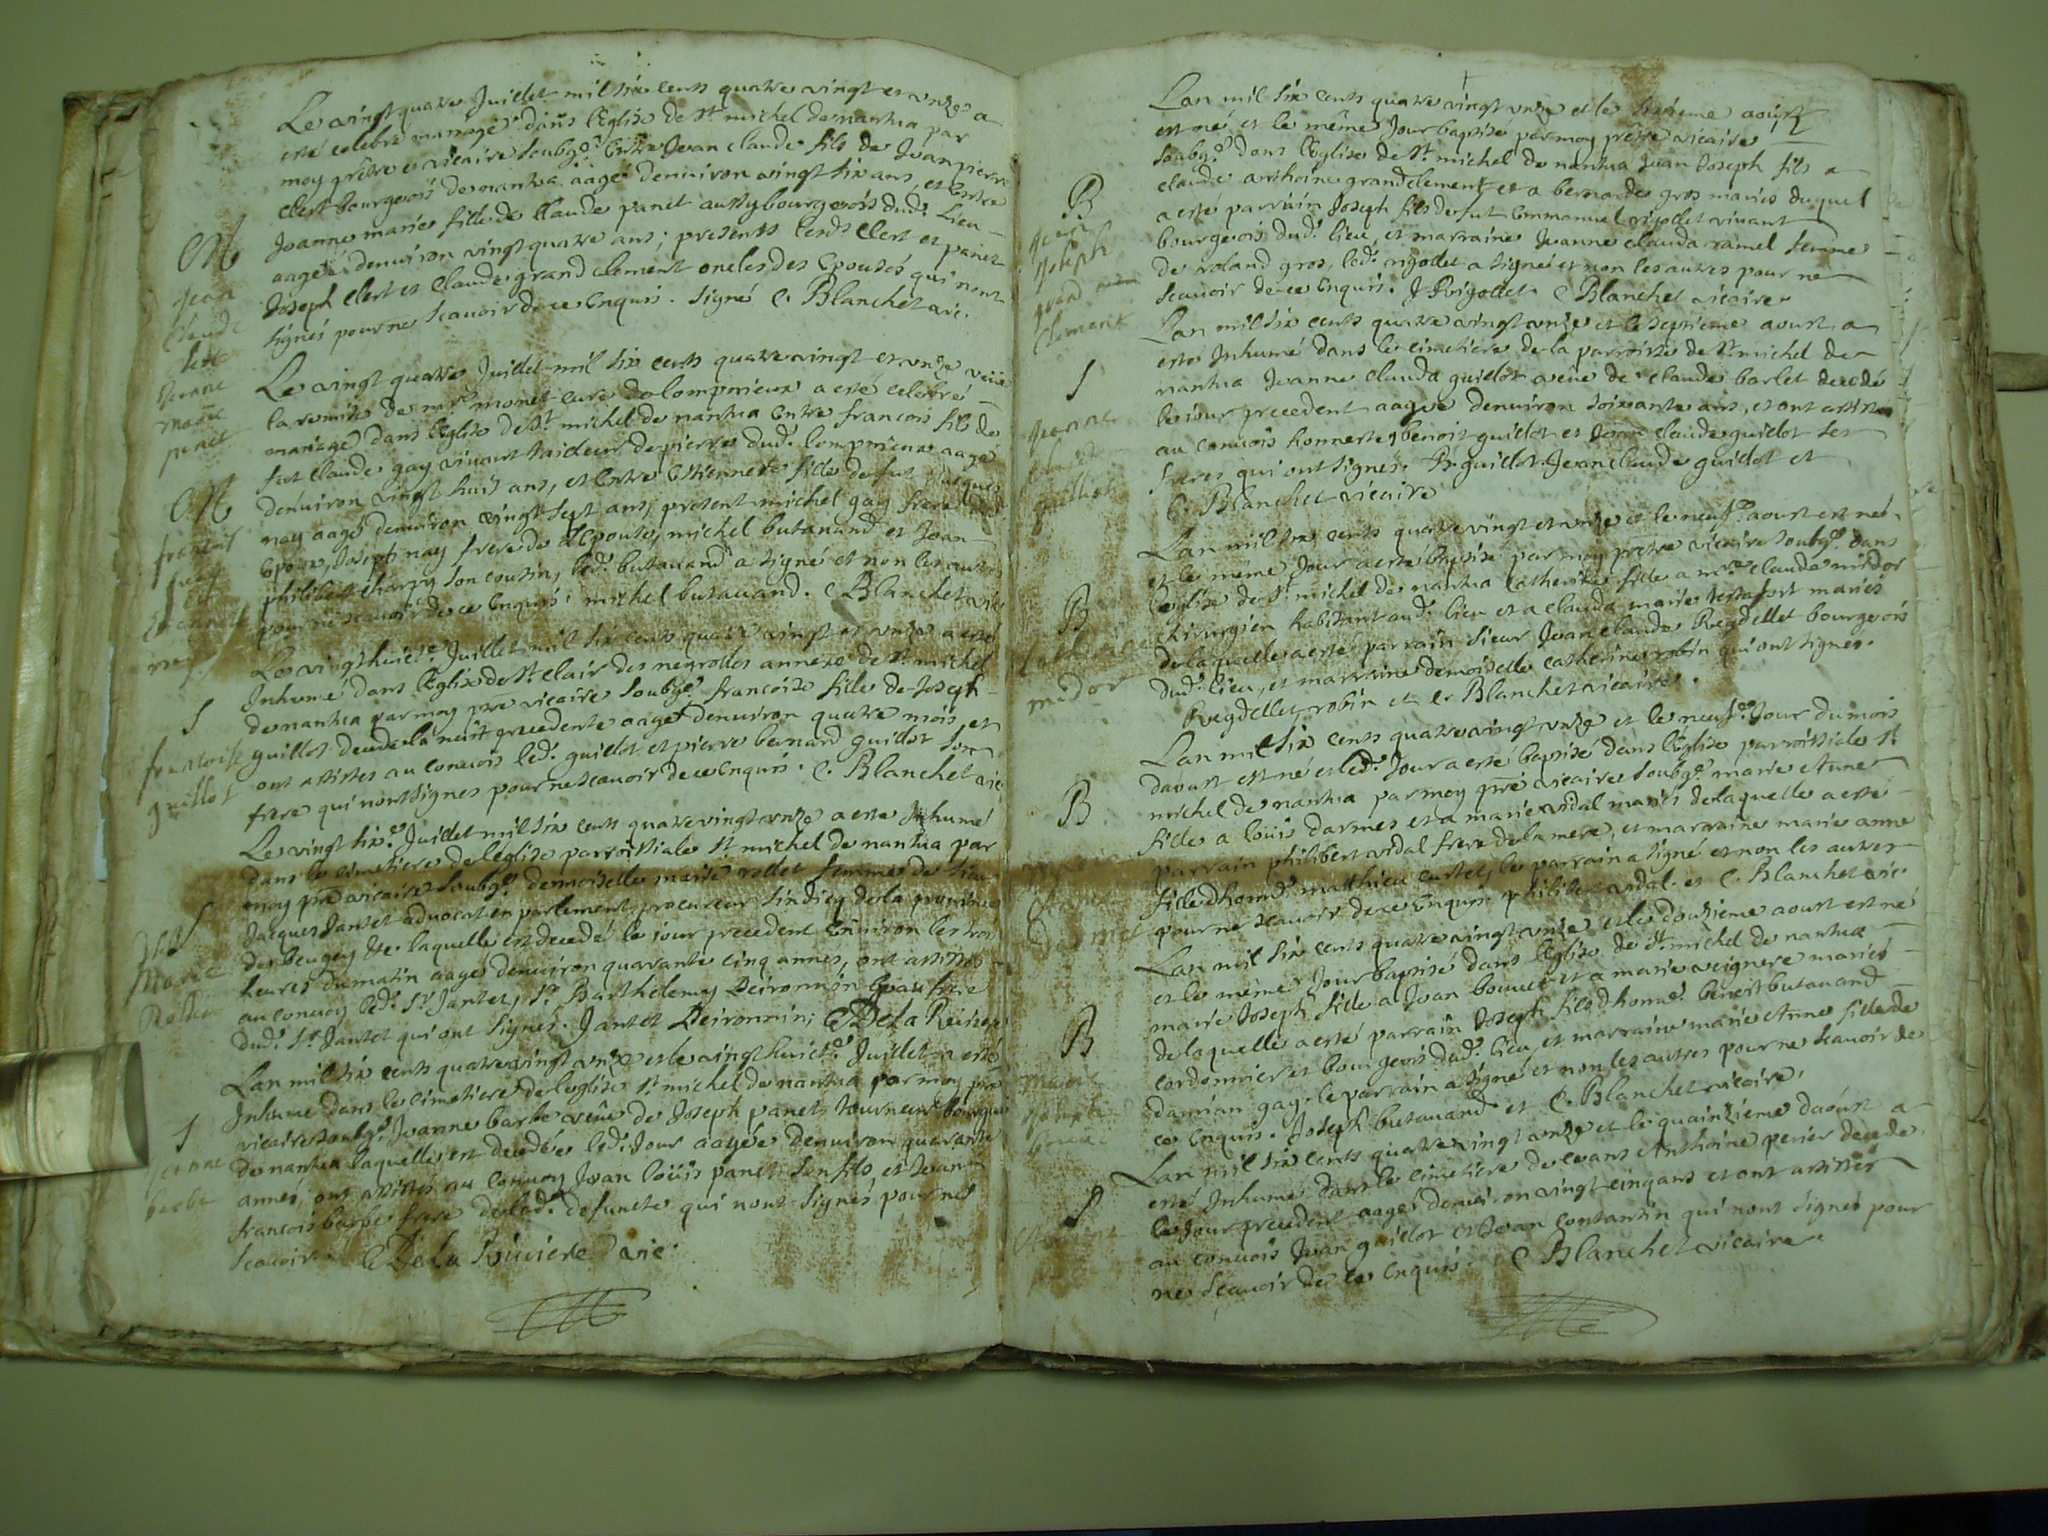 Le vingt quatre Juillet mil six cents quatre vingt et unze a
esté celebré mariage dans l'Eglise de St michel de nantua par
moy prêtre et vicaire soubsgé. Entre Jean claude fils de Jean pierre
Clert bourgeois de nantua aagé denuiron vingt six ans, et Entre
Jeanne marie fille de Claude panet aussy bourgeois dud. Lieu
aagée denuiron vingt quatre ans; presents lesds Clert et panet
Joseph Clert et Claude grand clement oncles des Epousés qui nont
signés pour ne scauoir de ce Enquis. Signé C. Blanchet vic.
M
Jean
Claude
Jeanne
marie
panet
Le vingt quatre Juillet mil six cents quatre vingt et unze veüe
la remise de mre monet curé de lompnieux a esté celebré
mariage dans l'Eglise de St michel de nantua Entre francois fils de
fut Claude gay viuant tailleur de pierre dud. lompnieux aagé
denuiron vingt huit ans, et Entre Estiennette fille de fut Jacques
nay aagé denuiron vingt sept ans, present michel gay frere
Epoux, Joseph nay frere de l'Epouse, michel butauand et Jean
philibert charpy son cousin, led. butauand a signé et non les autres
pour ne scauoir de ce Enquis. michel butauand. C. Blanchet vic
M
francois
gay
Estiennette
nay
Le vingt huict.e Juillet mil six cents quatre vingt et unze a esté
Inhumé dans l'Eglise de St clair des negrolles annexe de St michel
de nantua par moy pre vicaire soubgé. francoise fille de Joseph
guillot decedé la nuit precedente aagé denuiron quatre mois, et
ont assistes au conuois led. guillot et pierre bernard guillot son
frere qui nont signes pour ne scauoir de ce Enquis. C. Blanchet vic
S
francoise
guillot
Le vingt six.e Juillet mil six cents quatre vingt unze a esté Inhumé
dans le cimetiere de leglise parroissiale St michel de nantua par
moy pre vicaire soubgé. demoiselle marie rollet femme de sieur
Jacques Jantet aduocat en parlement, procureur sindicq de la prouince
de beugey &c. laquelle est decedé le jour precedent Enuiron les trois
heures du matin aagé denuiron quarante cinq années, ont assistes
au conuoy led. Sr Jantet, Sr Barthelemy Deironnin beau frere
dud. Sr Jantet qui ont signes. Jantet Deironnin; C DeLa Riuiere
S
Marie
Rollet
Lan mil six cents quatre vingt unze et le vingt huict.e Juillet a esté
Inhumé dans le cimetiere de leglise St michel de nantua par moy pre
vicaire soubgé. Jeanne barbe veüue de Joseph panet, tourneur bourgeois
de nantua laquelle est decedée led. Jour aagée denuiron quarante
années, ont assistes au conuoy Jean loüis panet son fils et Jean
francois barbe frere de lad. defuncte qui nont signés pour ne
scauoir. C DeLa Riuiere vic.
S
Jeanne
barbe
Lan mil six cents quatre vingt unze et le sixieme aoust
est né et le même Jour baptisé par moy prêtre vicaire
soubgé. dans l'Eglise de St. michel de nantua Jean Joseph fils a
claude anthoine grandclement et a bernarde gros mariés duquel
a esté parrain Joseph fils de fut Emmanuel rigollet viuant
bourgeois dud. lieu, et marraine Jeanne claude ramel femme
de roland gros, led. rigollet a signé et non les autres pour ne
scauoir de ce Enquis. J Rigollet. C Blanchet vicaire
B
Jean
Joseph
grand
Clement
Lan mil six cents quatre vingt unze et le septieme aoust a
esté Inhumé dans le cimetiere de la parroisse de St. michel de
nantua Jeanne Clauda guillot veüe de claude barlet decedé
le jour precedent aagée denuiron soixante ans, et ont assistes
au conuois honnestes benoit guillot et Jean Claude guillot ses
freres qui ont signés. B. guillot. Jean claude guillot et
C. Blanchet vicaire
S
Jeanne
Clauda
guillot
Lan mil six cents quatre vingt et unze et le neuf.e aoust est né
et le même Jour a esté baptisé par moy prêtre vicaire soubgé. dans
l'Eglise de St. michel de nantua Catherine fille a mre Claude midor
chirurgien habitant aud. lieu et a clauda marie testafort mariés
de laquelle a esté parrain sieur Jean Claude Reydellet bourgeois
dud. lieu, et marraine demoiselle catherine robin qui ont signes.
Reydellet, robin et C. Blanchet vicaire.
B
Catherine
midor
Lan mil six cents quatre vingt unze et le neuf.e Jour du mois
daoust est né et led. Jour a esté baptisé dans l'Eglise parroissiale St
michel de nantua par moy pre vicaire soubgé. marie Anne
fille a loüis darmet et a marie vidal mariés de laquelle a esté
parrain philibert vidal frere de la mere, et marraine marie anne
fille dhonn.e matthieu curtet, le parrain a signé et non les autres
pour ne scauoir de ce Enquis. philibert vidal. et C. Blanchet vic.
B
Lan mil six cents quatre vingt unze et le douzieme aoust est né
et le même Jour baptisé dans l'Eglise de St. michel de nantua
marie Joseph fille a Jean bouuet et a marie vignere mariés
de laquelle a esté parrain Joseph fils dhonn.e benoit butauand
cordonnier et bourgeois dud. lieu, et marraine marie Anne fille de
damian gay. le parrain a signé et non les autres pour ne scauoir de
ce Enquis. Joseph butauand et C. Blanchet vicaire.
B
marie
Joseph
Lan mil six cents quatre vingt unze et le quainzieme daoust a
esté Inhumé dans le cimetiere de ceans Anthoine perier decedé
le jour precedent aagé denuiron vingt cinq ans et ont assistes
au conuois Jean guillot et Jean contantin qui nont signés pour
ne scauoir de ce Enquis. C Blanchet vicaire.
S